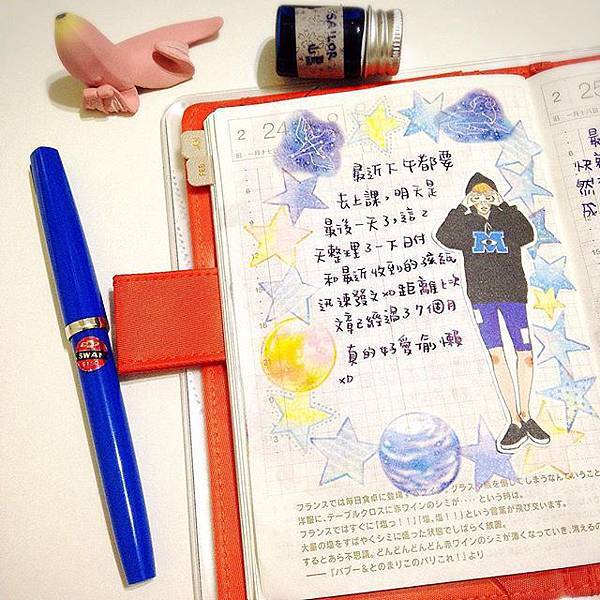 SAILOR
2 24
最近下午都要
去上課，明天是
最後一天了，這2
天整理了一下日付
和最近收到的孩紙
迅速發文xD距離上次
文章已經過了7個月
真的好愛偷懶
xD
M
SWAN
フランスでは毎日食卓に登場 グラスや瓶を倒してしまうなんていうこと
洋服に、テーブルクロスに赤ワインのシミが‥‥という時は。
フランスではすぐに「塩っ！！」「塩、塩！！」という言葉が飛び交います。
大量の塩をすばやくシミに盛った状態でしばらく放置。
するとあら不思議。どんどんどんどん赤ワインのシミが薄くなっていき、消えるの
――『バブー＆とのまりこのパリこれ！』より
2 25
最
快
然
成